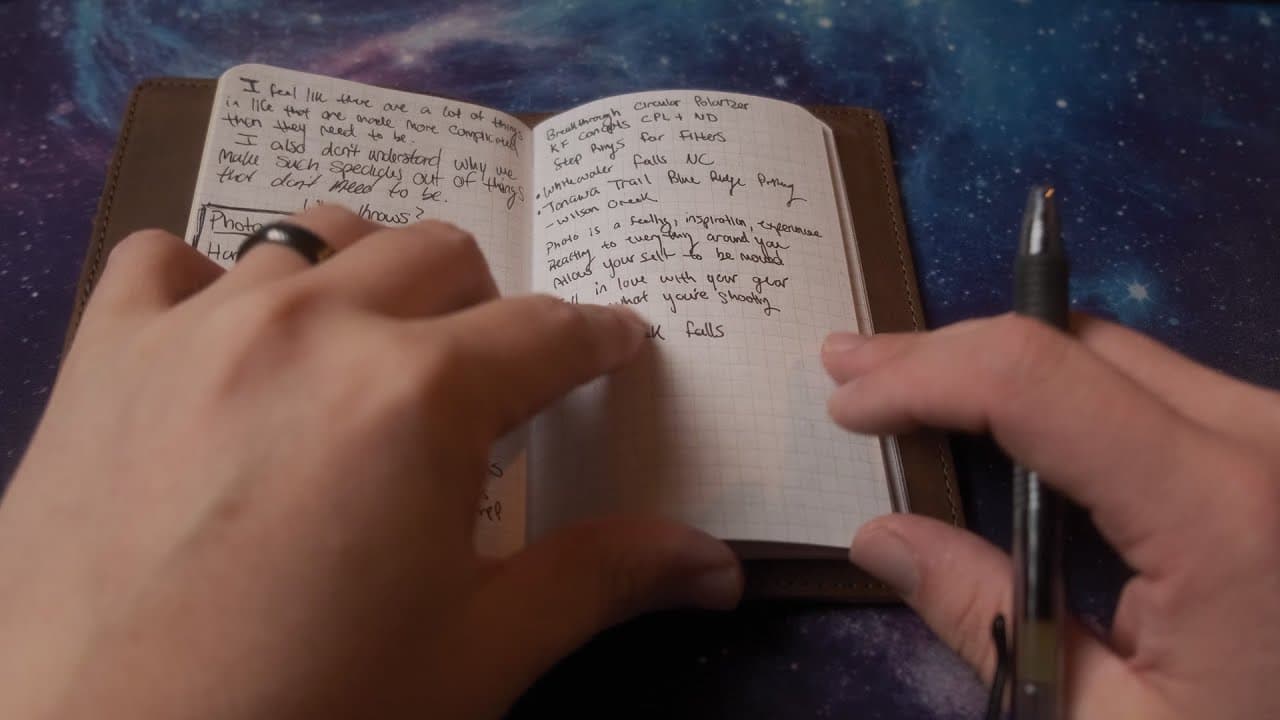 I feel like there are a lot of things
in life that are made more complicated
then they need to be.
I also don't understand why we
make such specticles out of things
that don't need to be.
throws?
Photo
Breakthrough Circular Polarizer
KF Concepts CPL + ND
Step Rings for Filters
• Whitewater Falls NC
• Tanawa Trail Blue Ridge
- Wilson Creek
Photo is a feeling, inspiration, experience
Reacting to everything around you
Allow your self to be moved
in love with your gear
what you're shooting
falls